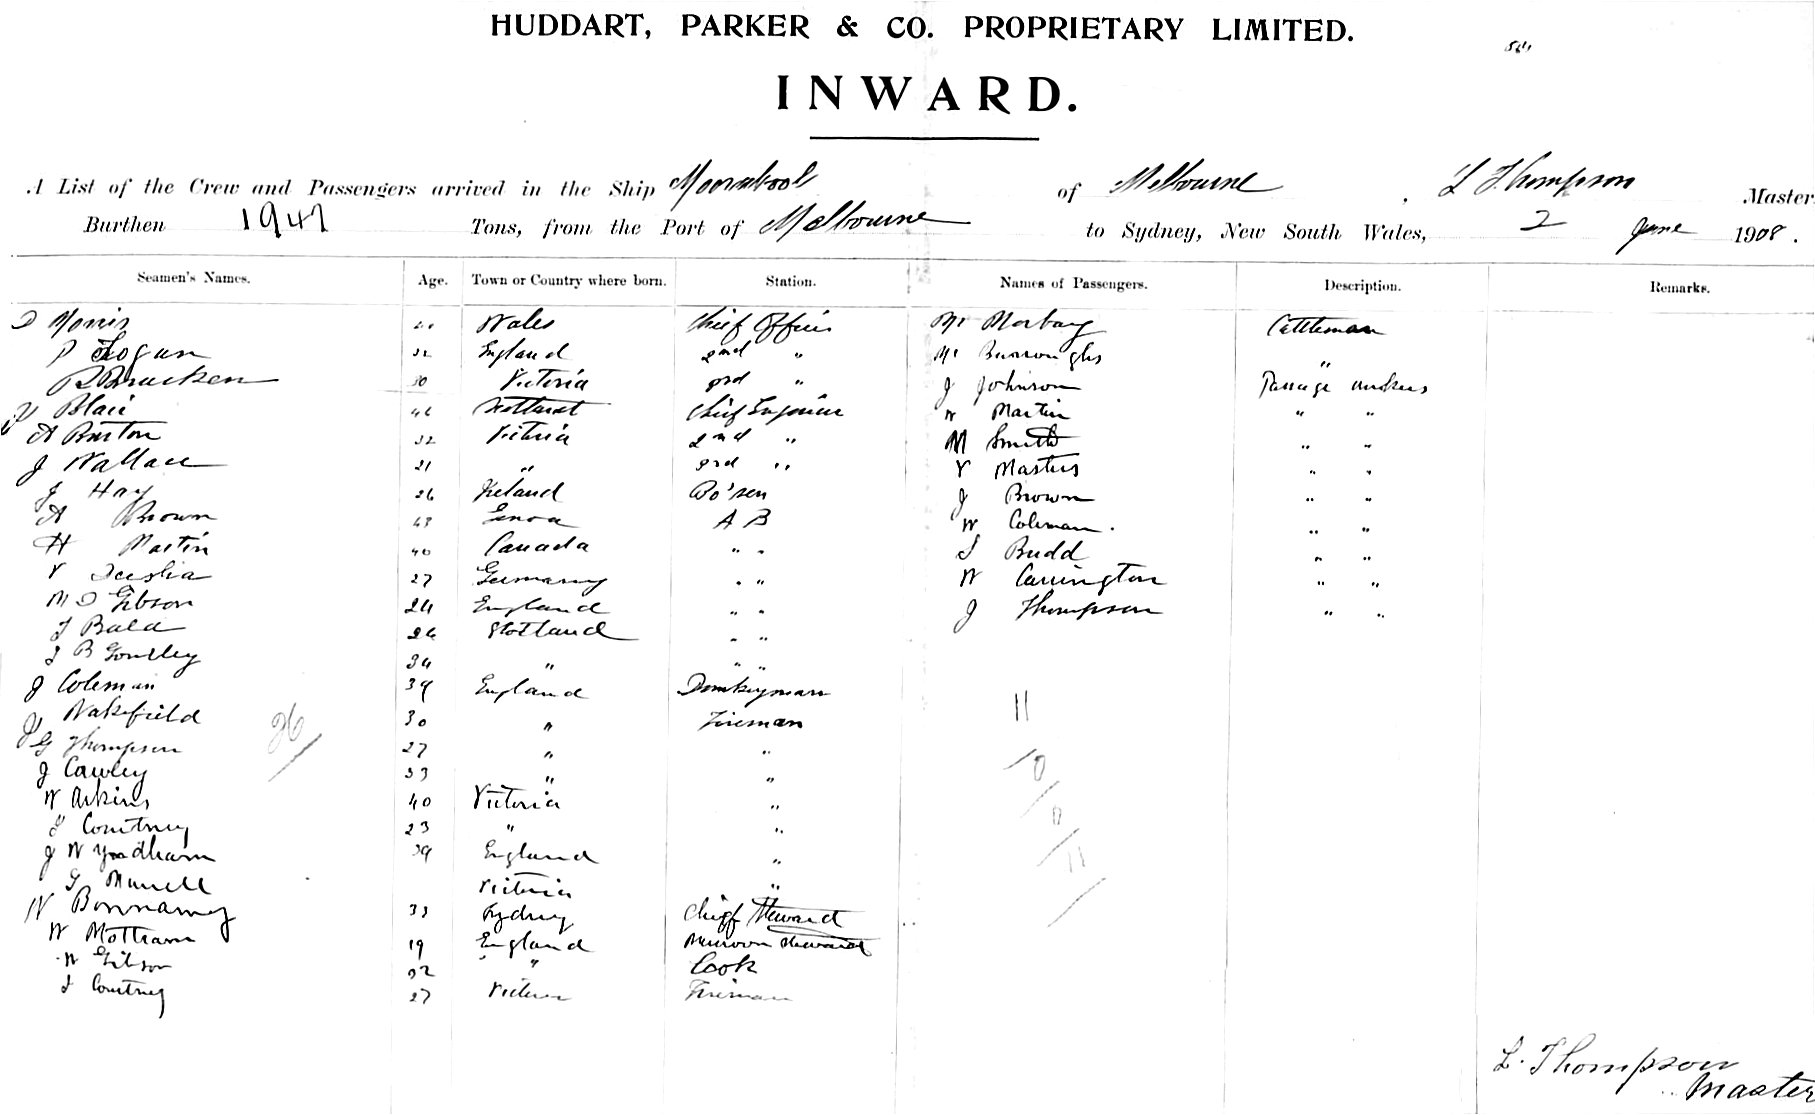 HUDDART, PARKER & CO. PROPRIETARY LIMITED.
INWARD.
A List of the Crew and Passengers arrived in the Ship Moorabool of Melbourne, L Thompson Master
Burthen 1947 Tons, from the Port of Melbourne to Sydney, New South Wales, 2 June 1908.
Seamen's Names. Age. Town or Country where born. Station. Names of Passengers. Description. Remarks.
D Morris Wales Chief Officer Mr Cattleman
P Logan 32 England 2nd " Mr Burroughs "
R Bracken 30 Victoria 3rd " J Johnson Passage workers
Blair 46 Chief Engineer W Martin " "
A Burton 32 Victoria 2nd " M Smith " "
J Wallace 21 " 3rd " V Masters " "
J Hay 26 Ireland Bo'sen J Brown " "
A Brown 43 Genoa A B W Coleman. " "
H Martin 40 Canada " " S Budd " "
V 27 Germany " " W Carrington " "
M D Gibson 24 England " " J Thompson " "
J Bald 26 Scotland " "
J B Gourlley 34 " " "
J Coleman 39 England Donkeyman
Wakefield 30 " Fireman 11
G Thompson 27 " "
26
J Cawley 33 " "
W Arkins 40 Victoria "
J Courtney 23 " "
J W Yoodham 39 England "
11
G Murrell Victoria "
W Bonnamy 33 Sydney Chief Steward
W Mottram 19 England Steward
W Gibson 32 " Cook
J Courtney 27 Victoria Fireman
L. Thompson
Master